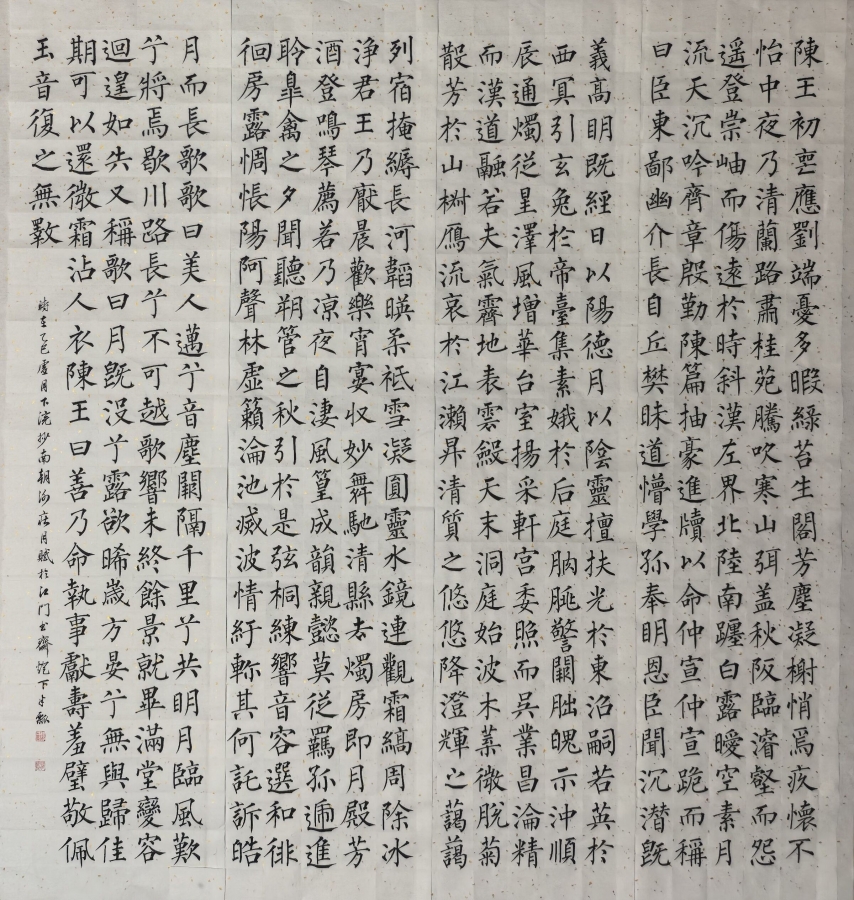 陳王初喪應劉端憂多暇綠苔生閣芳塵凝榭悄焉疚懷不
怡中夜乃清蘭路肅桂苑騰吹寒山弭盖秋阪臨濬壑而怨
遥登崇岫而傷遠於時斜漢左界北陸南躔白露曖空素月
流天沉吟齊章殷勤陳篇抽豪進牘以命仲宣仲宣跪而稱
曰臣東鄙幽介長自丘樊昧道懵學孤奉明恩臣聞沉潛既
義高明既經日以陽德月以陰靈擅扶光於東沼嗣若英於
西冥引玄兔於帝臺集素娥於后庭朒脁警闕朏魄示沖順
辰通燭從星澤風增華台室揚采軒宮委照而吳業昌淪精
而漢道融若夫氣霽地表雲斂天末洞庭始波木葉微脫菊
散芳於山椒鴈流哀於江瀨昇清質之悠悠降澄輝之藹藹
列宿掩縟長河韜暎柔祇雪凝圓靈水鏡連觀霜縞周除冰
淨君王乃厭晨歡樂宵宴収妙舞馳清縣去燭房即月殿芳
酒登鳴琴薦若乃凉夜自淒風篁成韻親懿莫從羈孤遞進
聆皋禽之夕聞聽朔管之秋引於是弦桐練響音容選和徘
徊房露惆悵陽阿聲林虛籟淪池滅波情紆軫其何託訴皓
月而長歌歌曰美人邁兮音塵闕隔千里兮共明月臨風歎
兮將焉歇川路長兮不可越歌響未終餘景就畢滿堂變容
迴遑如失又稱歌曰月既沒兮露欲晞歲方晏兮無與歸佳
期可以還微霜沾人衣陳王曰善乃命執事獻壽羞璧敬佩
玉音復之無斁
時在乙巳虞月下浣抄南朝謝莊月賦於江門書齋燈下